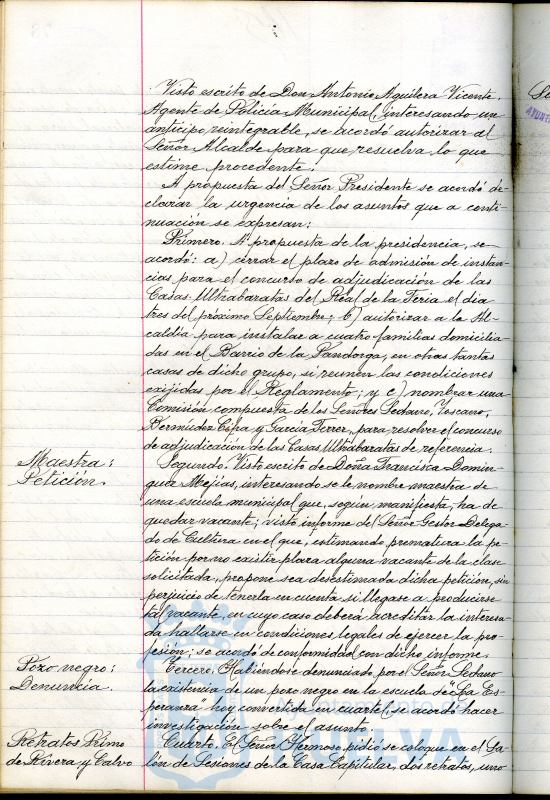 Visto escrito de Don Antonio Aguilera Vicente,
Agente de Policía Municipal, interesando un
anticipo reintegrable, se acordó autorizar al
Señor Alcalde para que resuelva lo que
estime procedente.
A propuesta del Señor Presidente se acordó de-
clarar la urgencia de los asuntos que a conti-
nuación se expresan:
Primero. A propuesta de la presidencia, se
acordó: a) cerrar el plazo de admisión de instan-
cias para el concurso de adjudicación de las
Casas Ultrabaratas del Real de la Feria el dia
tres del próximo Septiembre; b) autorizar a la Al-
caldía para instalar a cuatro familias domicilia-
das en el Barrio de la Pandorga, en otras tantas
casas de dicho grupo, si reunen las condiciones
exijidas por el Reglamento; y c) nombrar una
Comisión compuesta de los Señores Sedano, Vescano,
Bermúdez Cifra y García Ferrer, para resolver el concurso
de adjudicación de las Casas Ultrabaratas de referencia.
Maestra:
Petición.
Segundo. Visto escrito de Doña Francisca Domin-
guez Mejías, interesando se le nombre maestra de
una escuela municipal que, según manifiesta, ha de
quedar vacante; visto informe del Señor Gestor Delega-
do de Cultura en el que, estimando prematura la pe-
tición por no existir plaza alguna vacante de la clase
solicitada, propone sea desestimada dicha petición, sin
perjuicio de tenerla en cuenta si llegase a producirse
tal vacante, en cuyo caso deberá acreditar la interesa-
da hallarse en condiciones legales de ejercer la pro-
fesión; se acordó de conformidad con dicho informe.
Pozo negro:
Denuncia.
Tercero. Habiéndose denunciado por el Señor Sedano
la existencia de un pozo negro en la escuela de "La Es-
peranza" hoy convertida en cuartel, se acordó hacer
investigación sobre el asunto.
Retratos Primo
de Rivera y Calvo
Cuarto. El Señor Hermoso pidió se coloque en el Sa-
lón de Sesiones de la Casa Capitular, dos retratos, uno